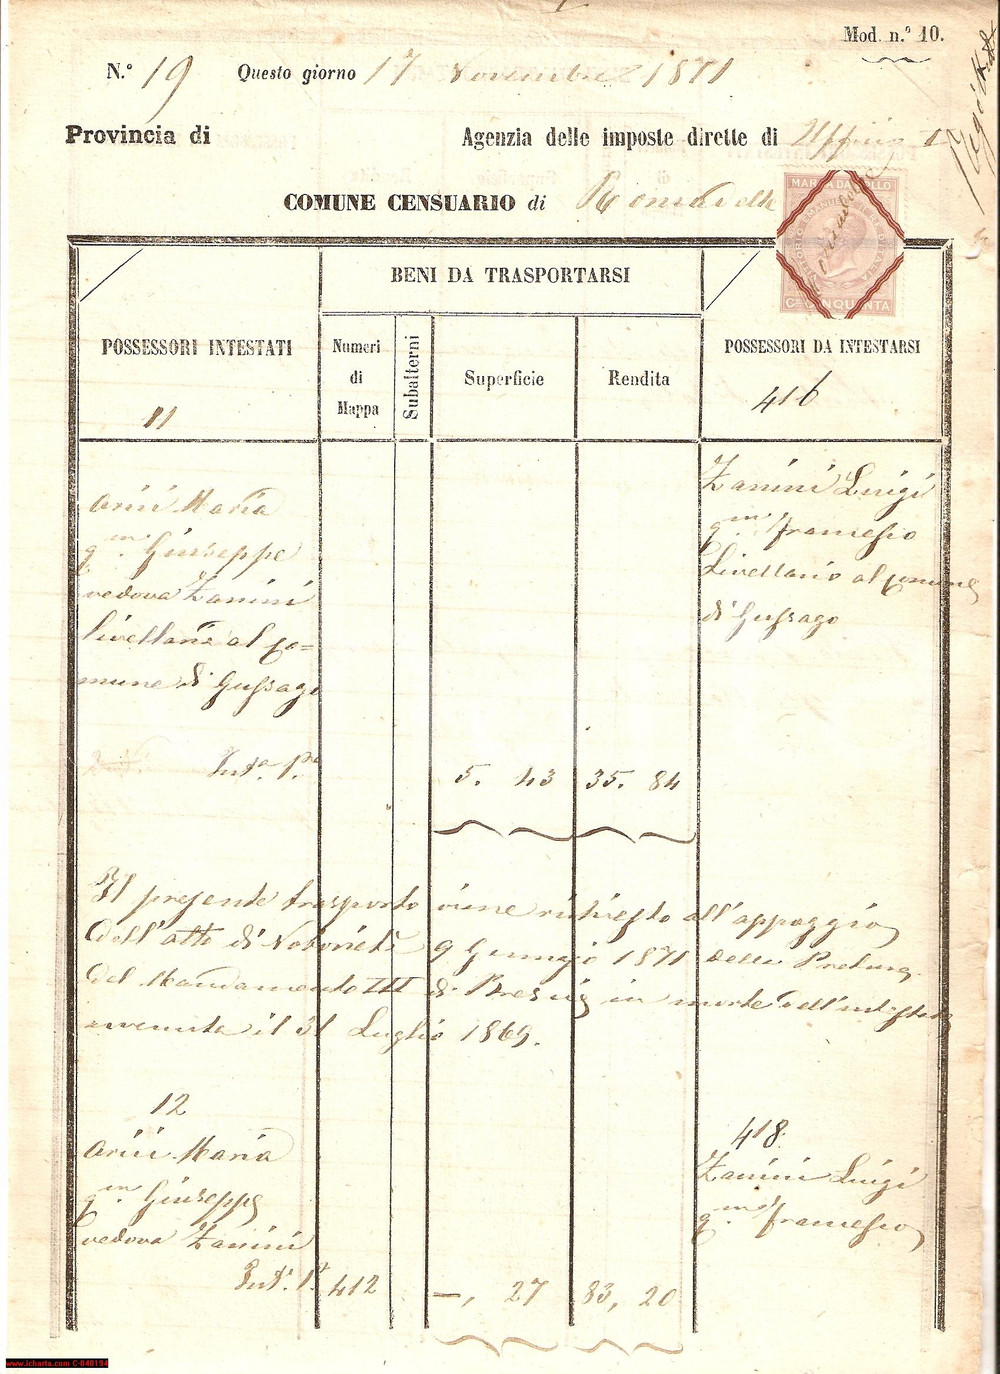 Mod. n.° 10.
N.° 19 Questo giorno 17 Novembre 1871
Provincia di Agenzia delle imposte dirette di
COMUNE CENSUARIO di
MARCA DA BOLLO
C.mi CINQUANTA
BENI DA TRASPORTARSI
POSSESSORI INTESTATI
11
Numeri di Mappa
Subalterni
Superficie
Rendita
POSSESSORI DA INTESTARSI
416
Maria
q.m Giuseppe
vedova Zanini
livellaria al co=
mune di Gussago
Int.a P.a
5. 43 35. 84
Zanini Luigi
q.m Francesco
Livellario al comune
di Gussago
Il presente trasporto viene richiesto all'appoggio
dell'atto di Notorietà 9 Giugno 1871 della Pretura
del Mandamento III di Brescia in morte dell'intestata
avvenuta il 31 Luglio 1869.
12
Maria
q.m Giuseppe
vedova Zanini
Int. P. 412 —, 27 83, 20
418.
Zanini Luigi
q.m Francesco
www.icharta.com C-040194